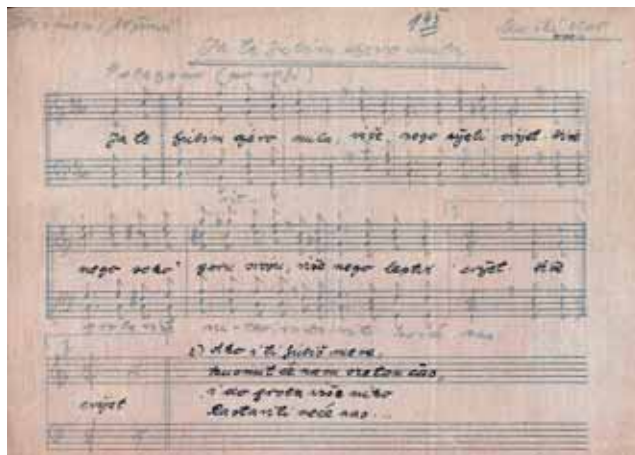 Ja te ljubim djevo mila
Ja te ljubim djevo mila, više, nego cijeli svijet više
nego soko' goru svoju, više nego leptir cvijet više
neće nas
2) Ako i ti ljubiš mene,
kucnut će nam sretan čas,
cvijet
i do groba više nitko
Rastaviti neće nas...